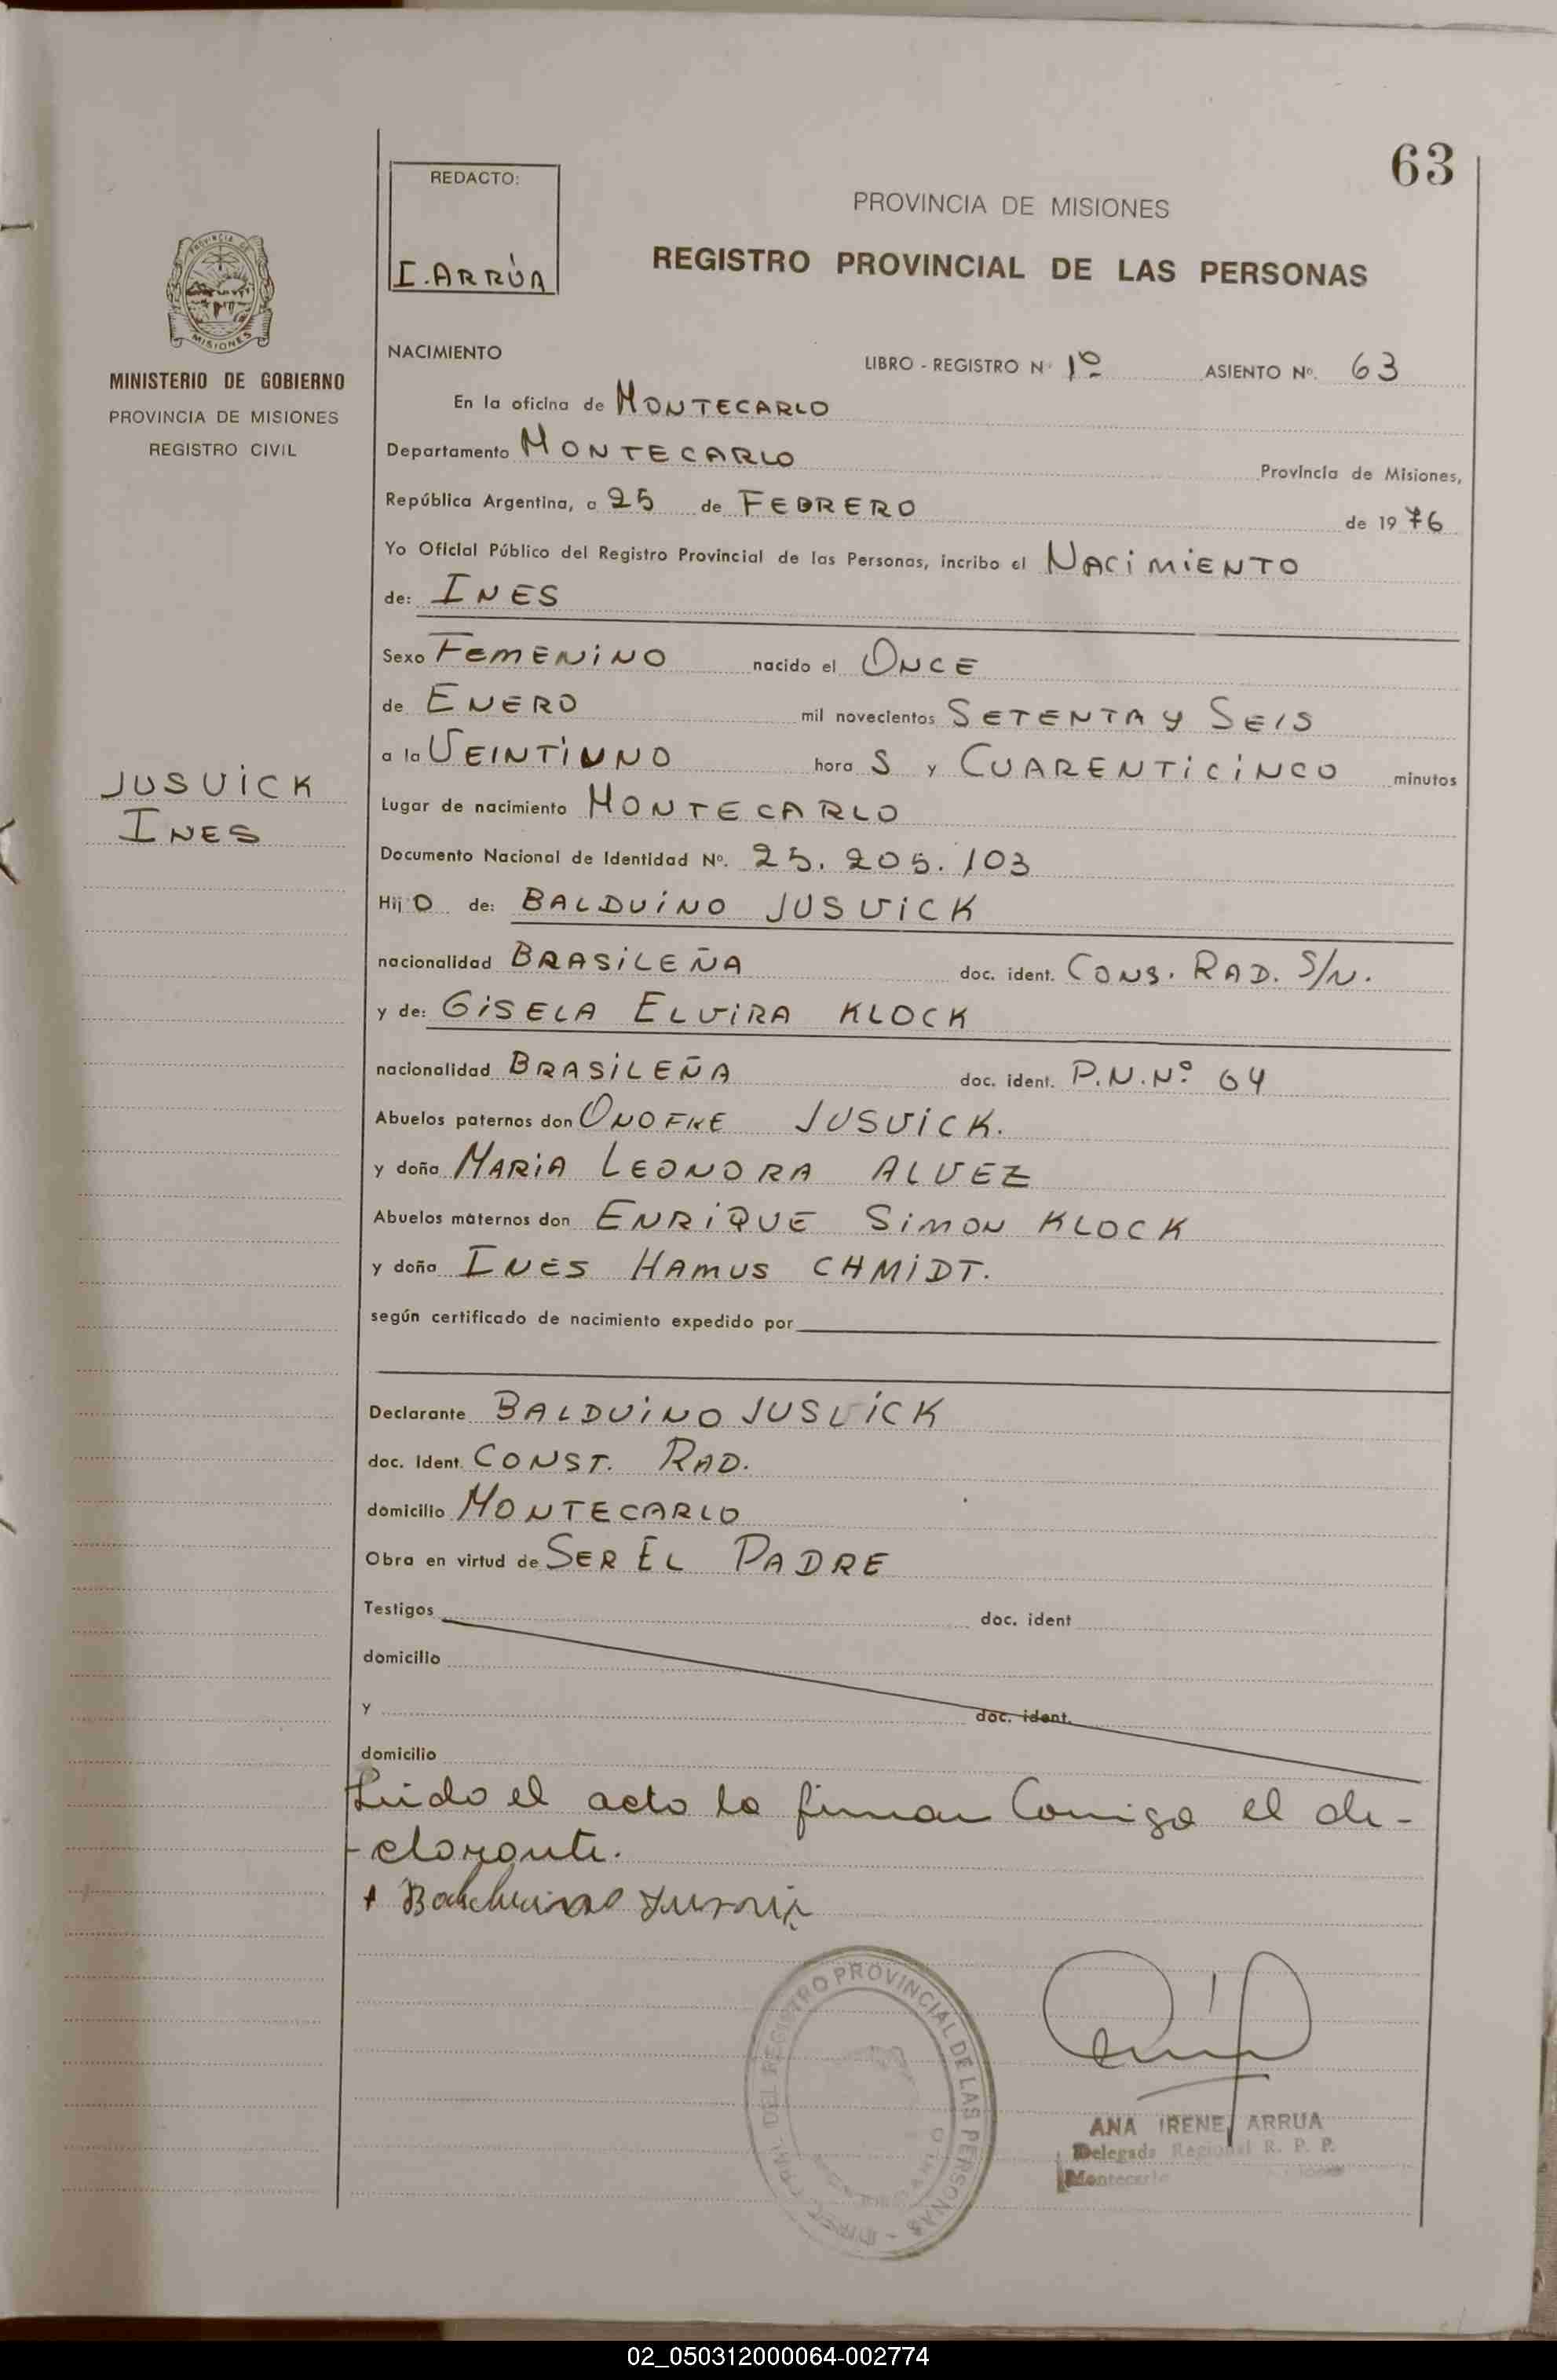 63
REDACTO:
I. ARRÚA
PROVINCIA DE MISIONES
REGISTRO PROVINCIAL DE LAS PERSONAS
PROVINCIA DE
MISIONES
MINISTERIO DE GOBIERNO
PROVINCIA DE MISIONES
REGISTRO CIVIL
NACIMIENTO LIBRO - REGISTRO Nº 1º ASIENTO Nº. 63
En la oficina de MONTECARLO
Departamento MONTECARLO Provincia de Misiones,
República Argentina, a 25 de FEBRERO de 1976
Yo Oficial Público del Registro Provincial de las Personas, incribo el NACIMIENTO
de: INES
Sexo FEMENINO nacido el ONCE
de ENERO mil novecientos SETENTA Y SEIS
a la VEINTIUNO hora S y CUARENTICINCO minutos
JUSVICK
INES
Lugar de nacimiento MONTECARLO
Documento Nacional de Identidad Nº. 25.205.103
Hij O de: BALDUINO JUSVICK
nacionalidad BRASILEÑA doc. ident. CONS. RAD. S/N.
y de: GISELA ELVIRA KLOCK
nacionalidad BRASILEÑA doc. ident. P.N.Nº 64
Abuelos paternos don ONOFRE JUSVICK.
y doña MARIA LEONORA ALVEZ
Abuelos maternos don ENRIQUE SIMON KLOCK
y doña INES HAMUS CHMIDT.
según certificado de nacimiento expedido por
Declarante BALDUINO JUSVICK
doc. Ident. CONST. RAD.
domicilio MONTECARLO
Obra en virtud de SER EL PADRE
Testigos doc. ident
domicilio
Y doc. ident.
domicilio
Leido el acto lo firman Conmigo el de-
-clarante.
DEL REGISTRO PROVINCIAL DE LAS PERSONAS -
ANA IRENE ARRUA
Delegada Regional R. P. P.
Montecarlo
02_050312000064-002774